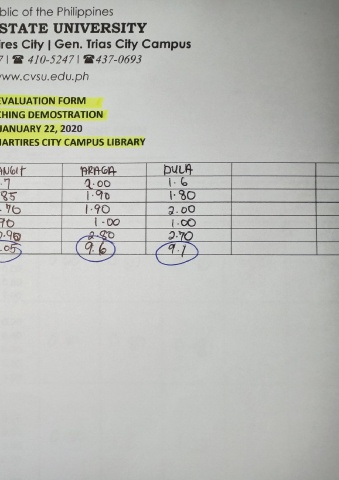 blic of the Philippines
STATE UNIVERSITY
ires City | Gen. Trias City Campus
7 | ☎ 410-5247 | ☎437-0693
www.cvsu.edu.ph
EVALUATION FORM
CHING DEMOSTRATION
JANUARY 22, 2020
MARTIRES CITY CAMPUS LIBRARY
ANGIT ARAGA DULA
.7 2.00 1.6
85 1.90 1.80
.70 1.90 2.00
90 1.00 1.00
2.90 2.80 2.70
.05 9.6 9.1